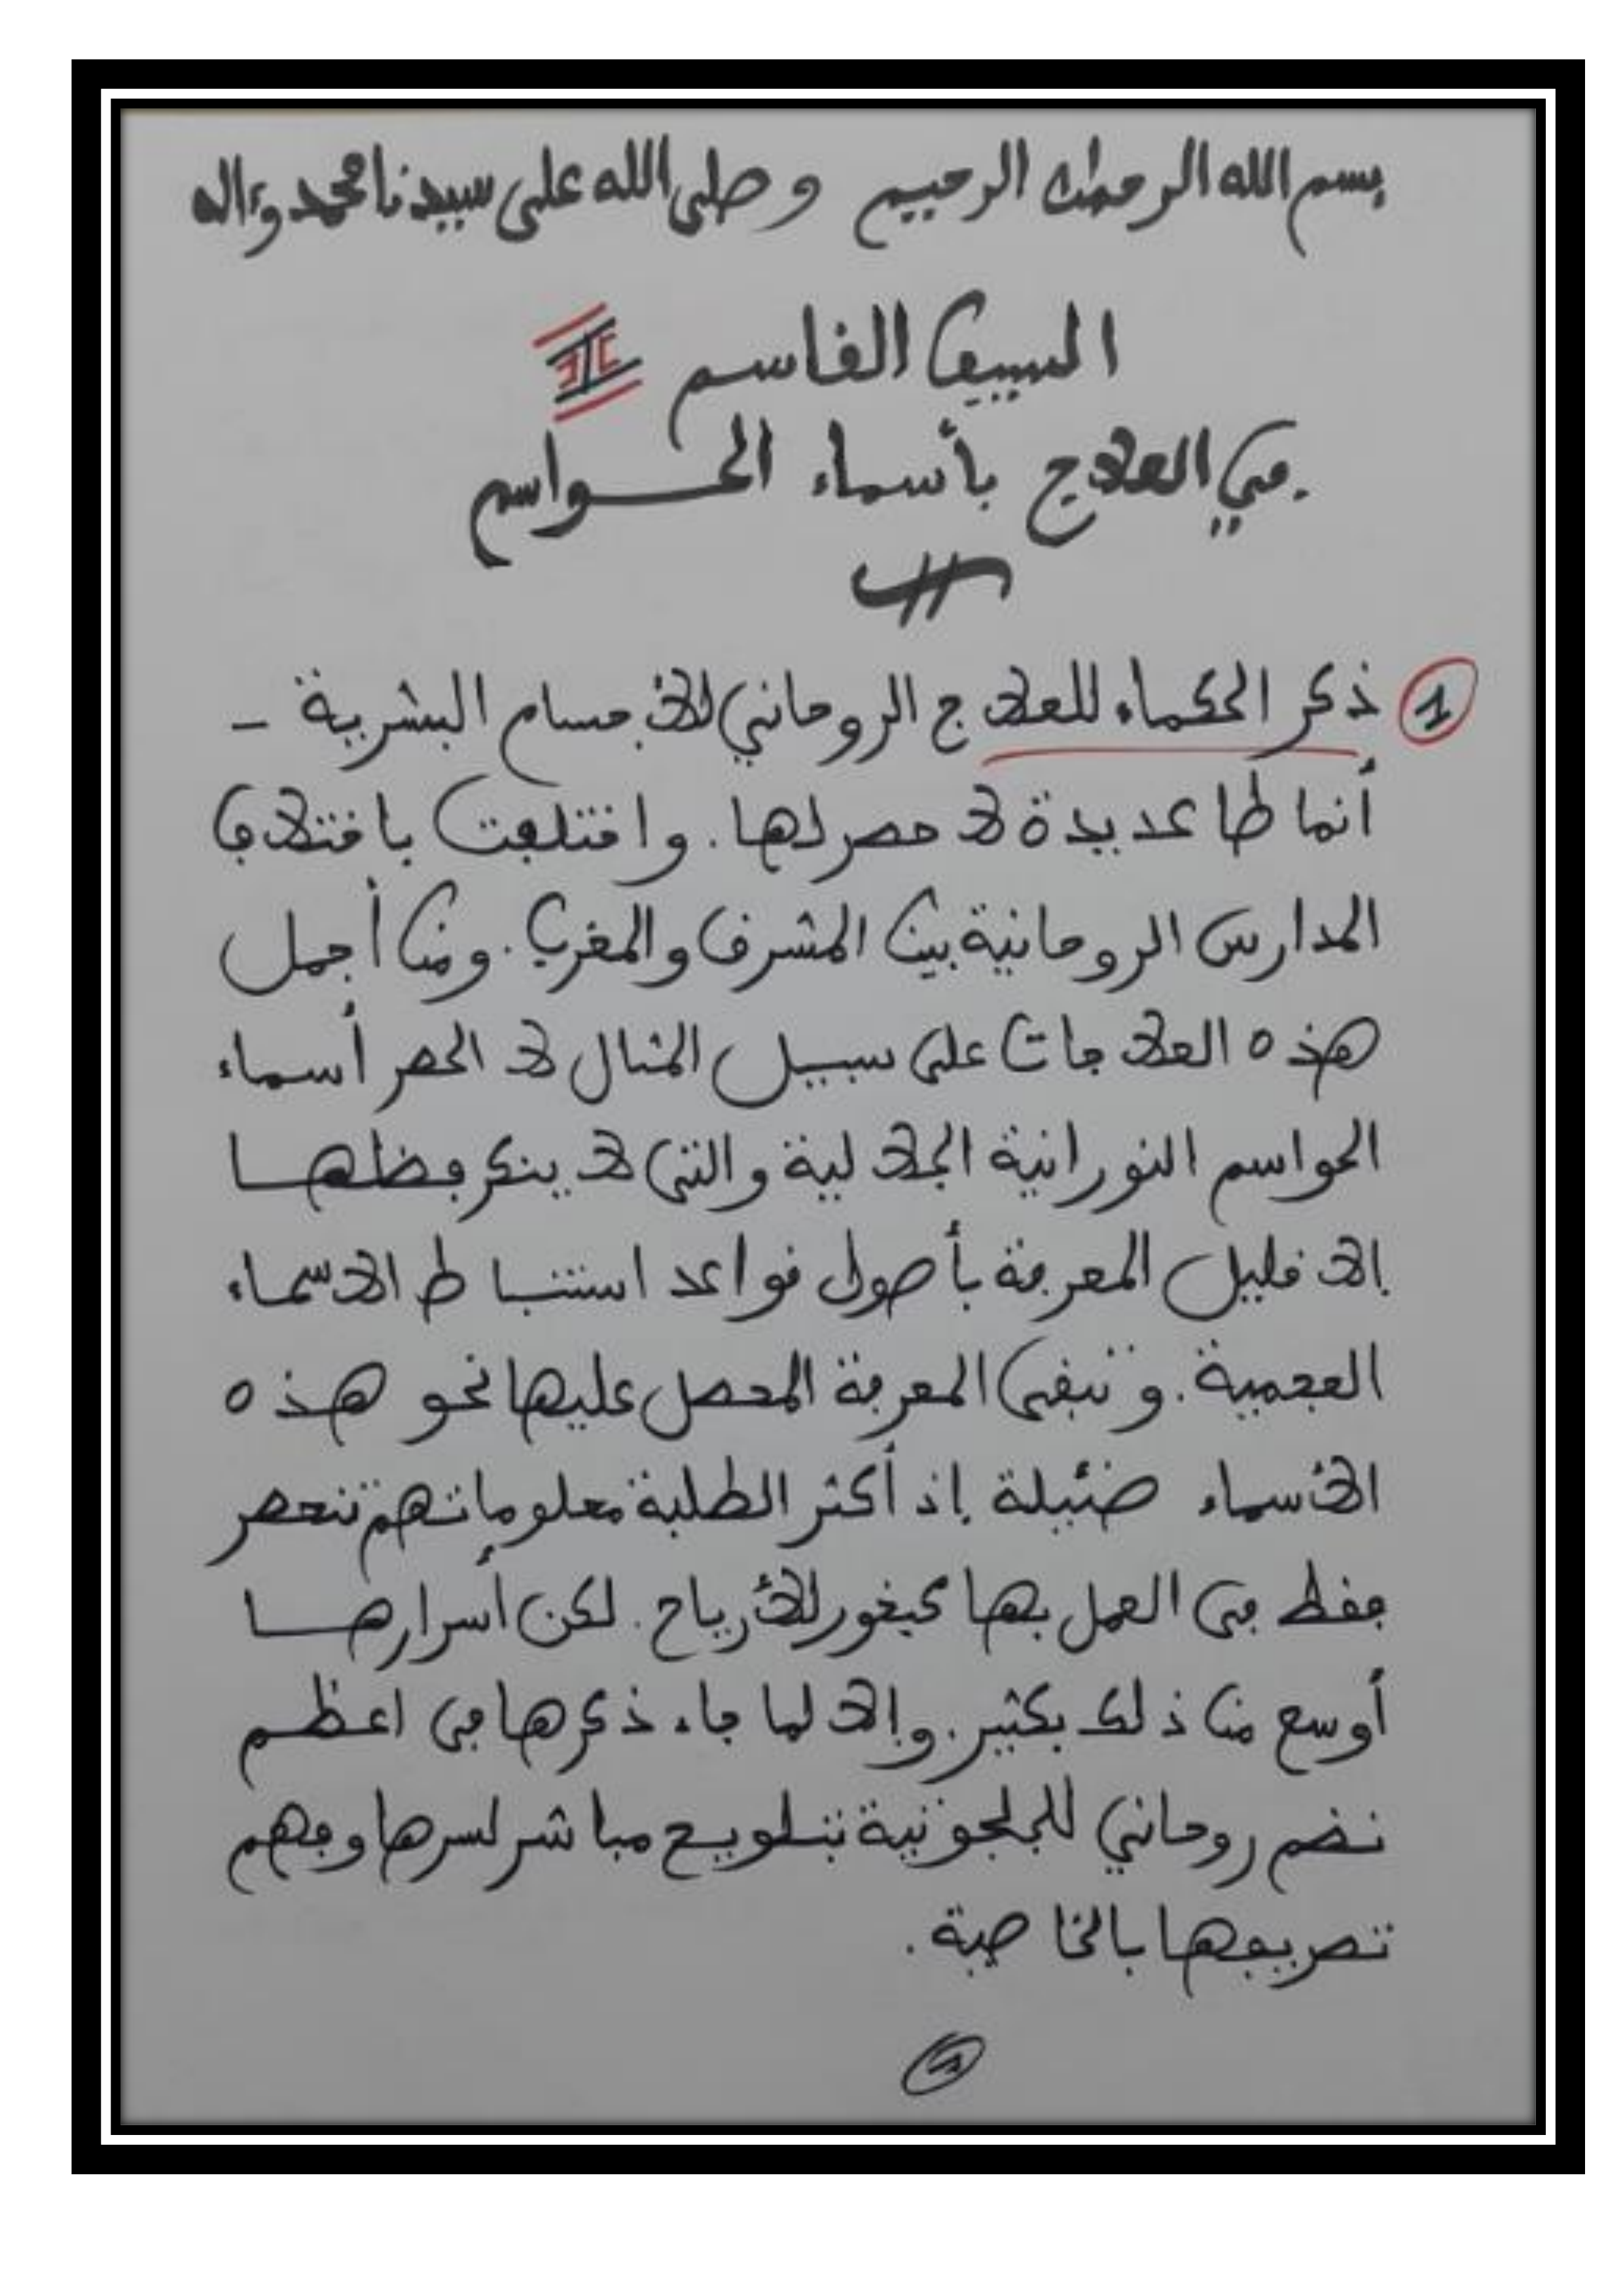 بسم الله الرحمان الرحيم وصلى الله على سيدنا محمد وءاله
السيف القاسم
في العلاج بأسماء الحواسم
1 ذكر الحكماء للعلاج الروحاني للأجسام البشرية -
أنماطا عديدة لا حصر لها. واختلفت باختلاف
المدارس الروحانية بين المشرق والمغرب. ومن أجمل
هذه العلاجات على سبيل المثال لا الحصر أسماء
الحواسم النورانية الجلالية والتي لا ينكر فضلها
إلا قليل المعرفة بأصول قواعد استنباط الاسماء
العجمية. وتبقى المعرفة المحصل عليها نحو هذه
الأسماء ضئيلة إذ أكثر الطلبة معلوماتهم تنحصر
فقط في العمل بها كبخور للأرياح. لكن أسرارها
أوسع من ذلك بكثير. وإلا لما جاء ذكرها في اعظم
نضم روحاني للجلجوتية بتلويح مباشر لسرها وفهم
تصريفها بالخاصية.
1